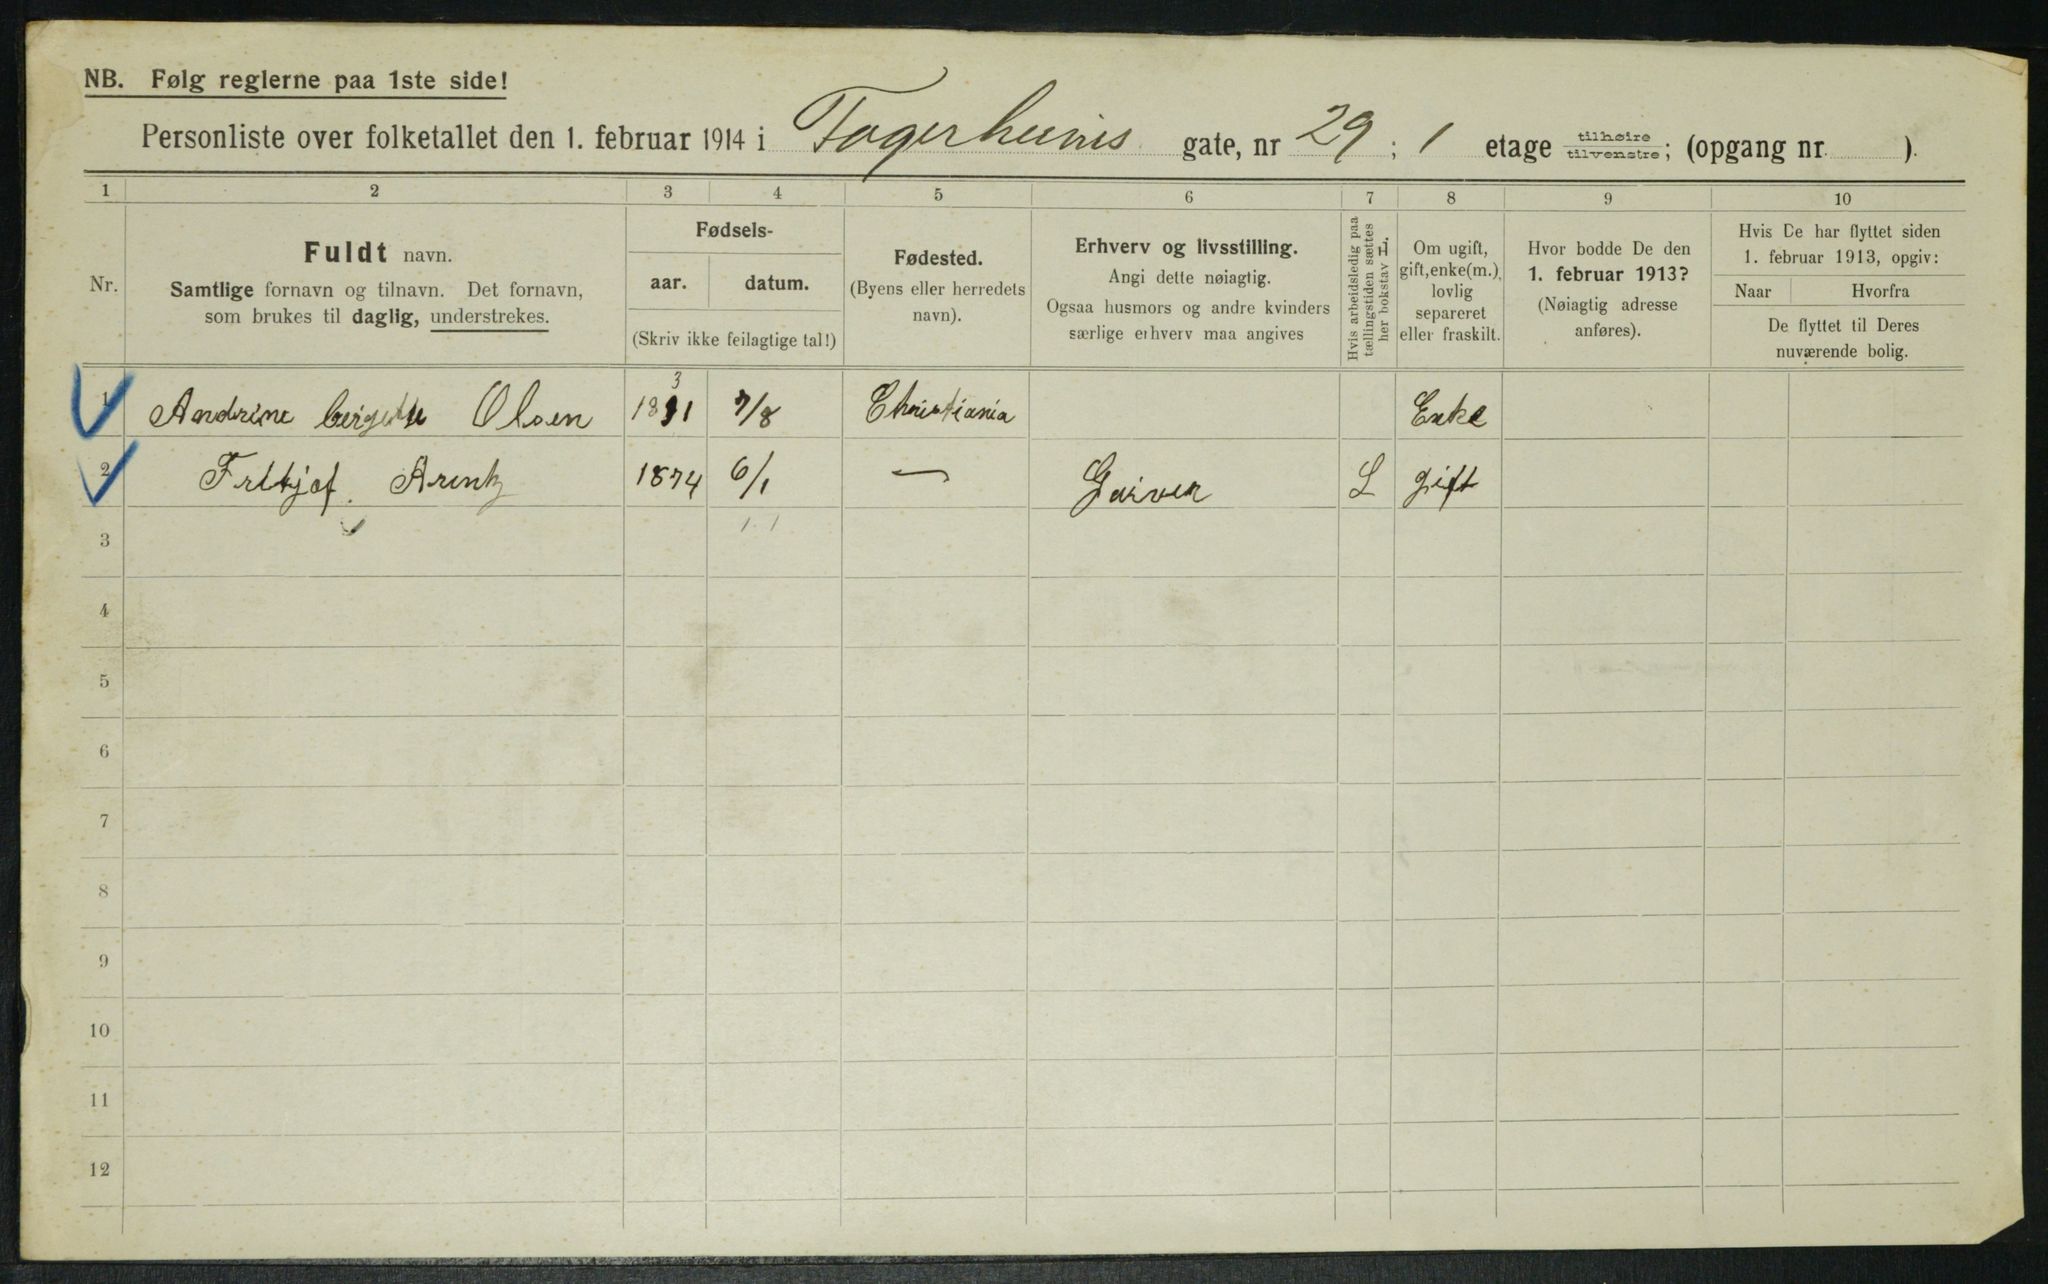 NB. Følg reglerne paa 1ste side!
Personliste over folketallet den 1. februar 1914 i Fagerheims gate, nr 29; 1 etage tilhøire tilvenstre; (opgang nr ).
1 2 3 4 5 6 7 8 9 10
Nr.
Fuldt navn.
Samtlige fornavn og tilnavn. Det fornavn,
som brukes til daglig, understrekes.
Fødsels-
aar. datum.
(Skriv ikke feilagtige tal!)
Fødested.
(Byens eller herredets
navn).
Erhverv og livsstilling.
Angi dette nøiagtig.
Ogsaa husmors og andre kvinders
særlige erhverv maa angives
Hvis arbeidsledig paa
tællingstiden sættes
her bokstav L.
Om ugift,
gift, enke(m.),
lovlig
separeret
eller fraskilt.
Hvor bodde De den
1. februar 1913?
(Nøiagtig adresse
anføres).
Hvis De har flyttet siden
1. februar 1913, opgiv:
Naar Hvorfra
De flyttet til Deres
nuværende bolig.
3
1 Andrine bergette Olsen 1831 7/8 Christiania Enke
2 Frltjof Arentz 1874 6/1 — Garver L gift
3 1 1
4
5
6
7
8
9
10
11
12